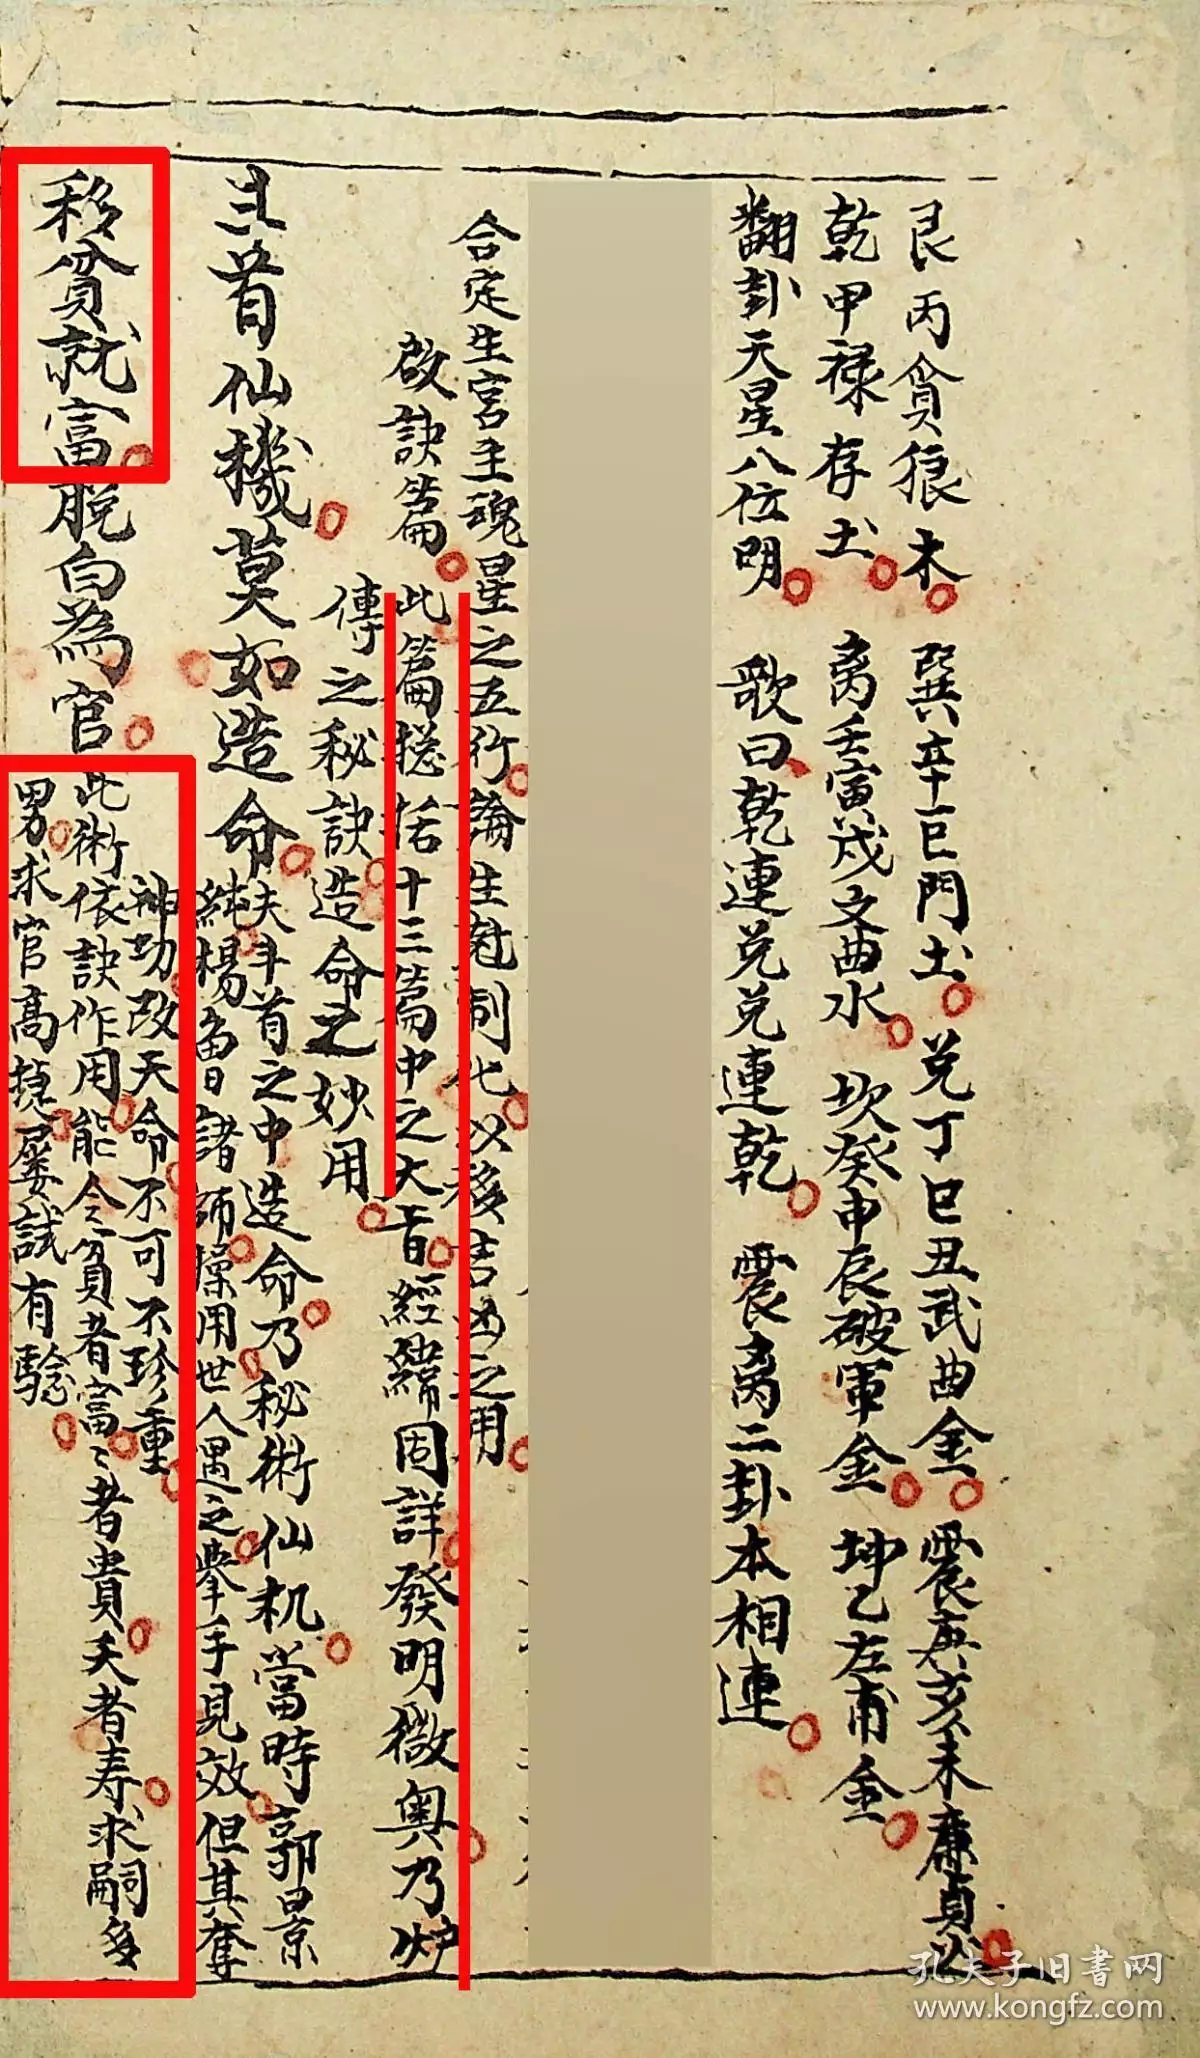 艮丙貪狼木　巽辛巨門土　兌丁巳丑武曲金　震庚亥未廉貞火
乾甲祿存土　离壬寅戌文曲水　坎癸申辰破軍金　坤乙左甫金
翻卦天星八位明　歌曰乾連兌兌連乾　震离二卦本相連
合定生宮主魂星之五行論生尅制化以移吉凶之用
啟訣篇　此篇捴括十三篇中之大旨經緯固詳發明微奧乃爐
傳之秘訣造命之妙用
斗首仙機莫如造命　夫斗首之中造命乃秘術仙机當時郭景
純楊曾諸師操用世人遇之舉手見效但其奪
神功改天命不可不珍重
移貧就富脫白為官　此術依訣作用能令貧者富〻者貴夭者寿求嗣多
男求官高擢屡試有驗
孔夫子旧書网
www.kongfz.com